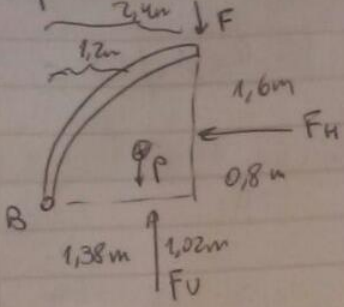 2,4m
F
1,2m
1,6m
FH
P
0,8m
B
1,38m
1,02m
FU